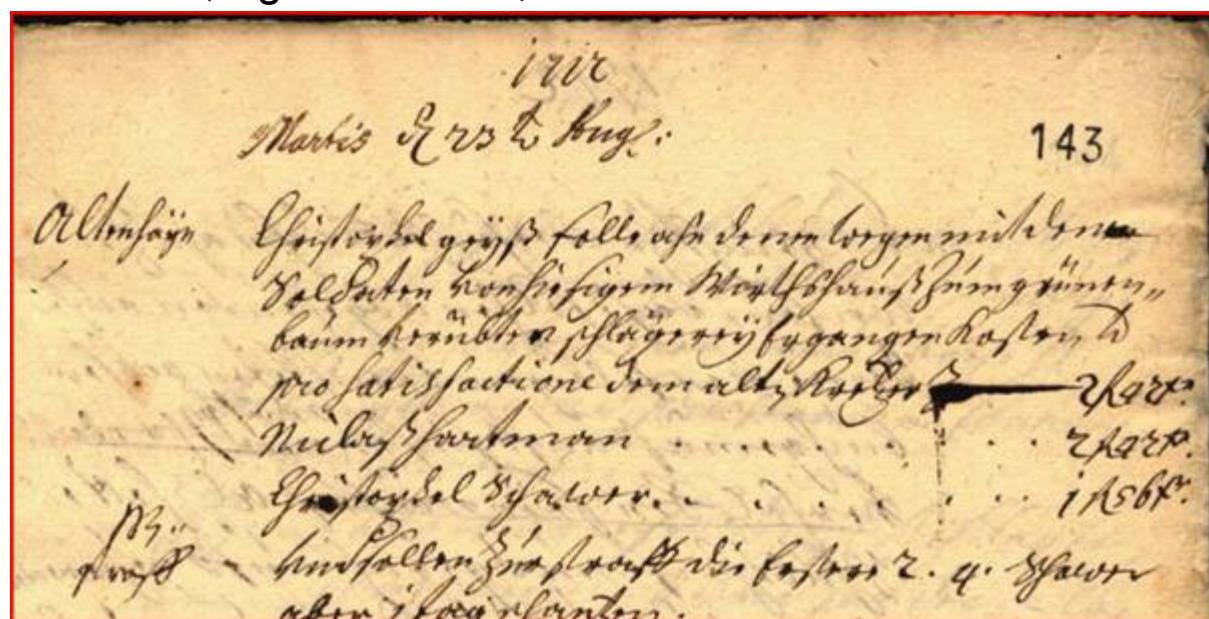 1712
Martis d 23 t Aug:
143
Altenhayn Christoffel geyß solle ahn denen wegen mit denen
Soldaten von hiesigem Wirthshauß zum grünen„
baum verübter schlägerey Ergangen Kosten
pro satisfactione dem alt
Niclaß hartman . . . . . . .
Christoffel Schawer . . . . . . .
straff Und sollen zur straff die Erstere 2. q. Schawer
aber 1 tag schantzen.